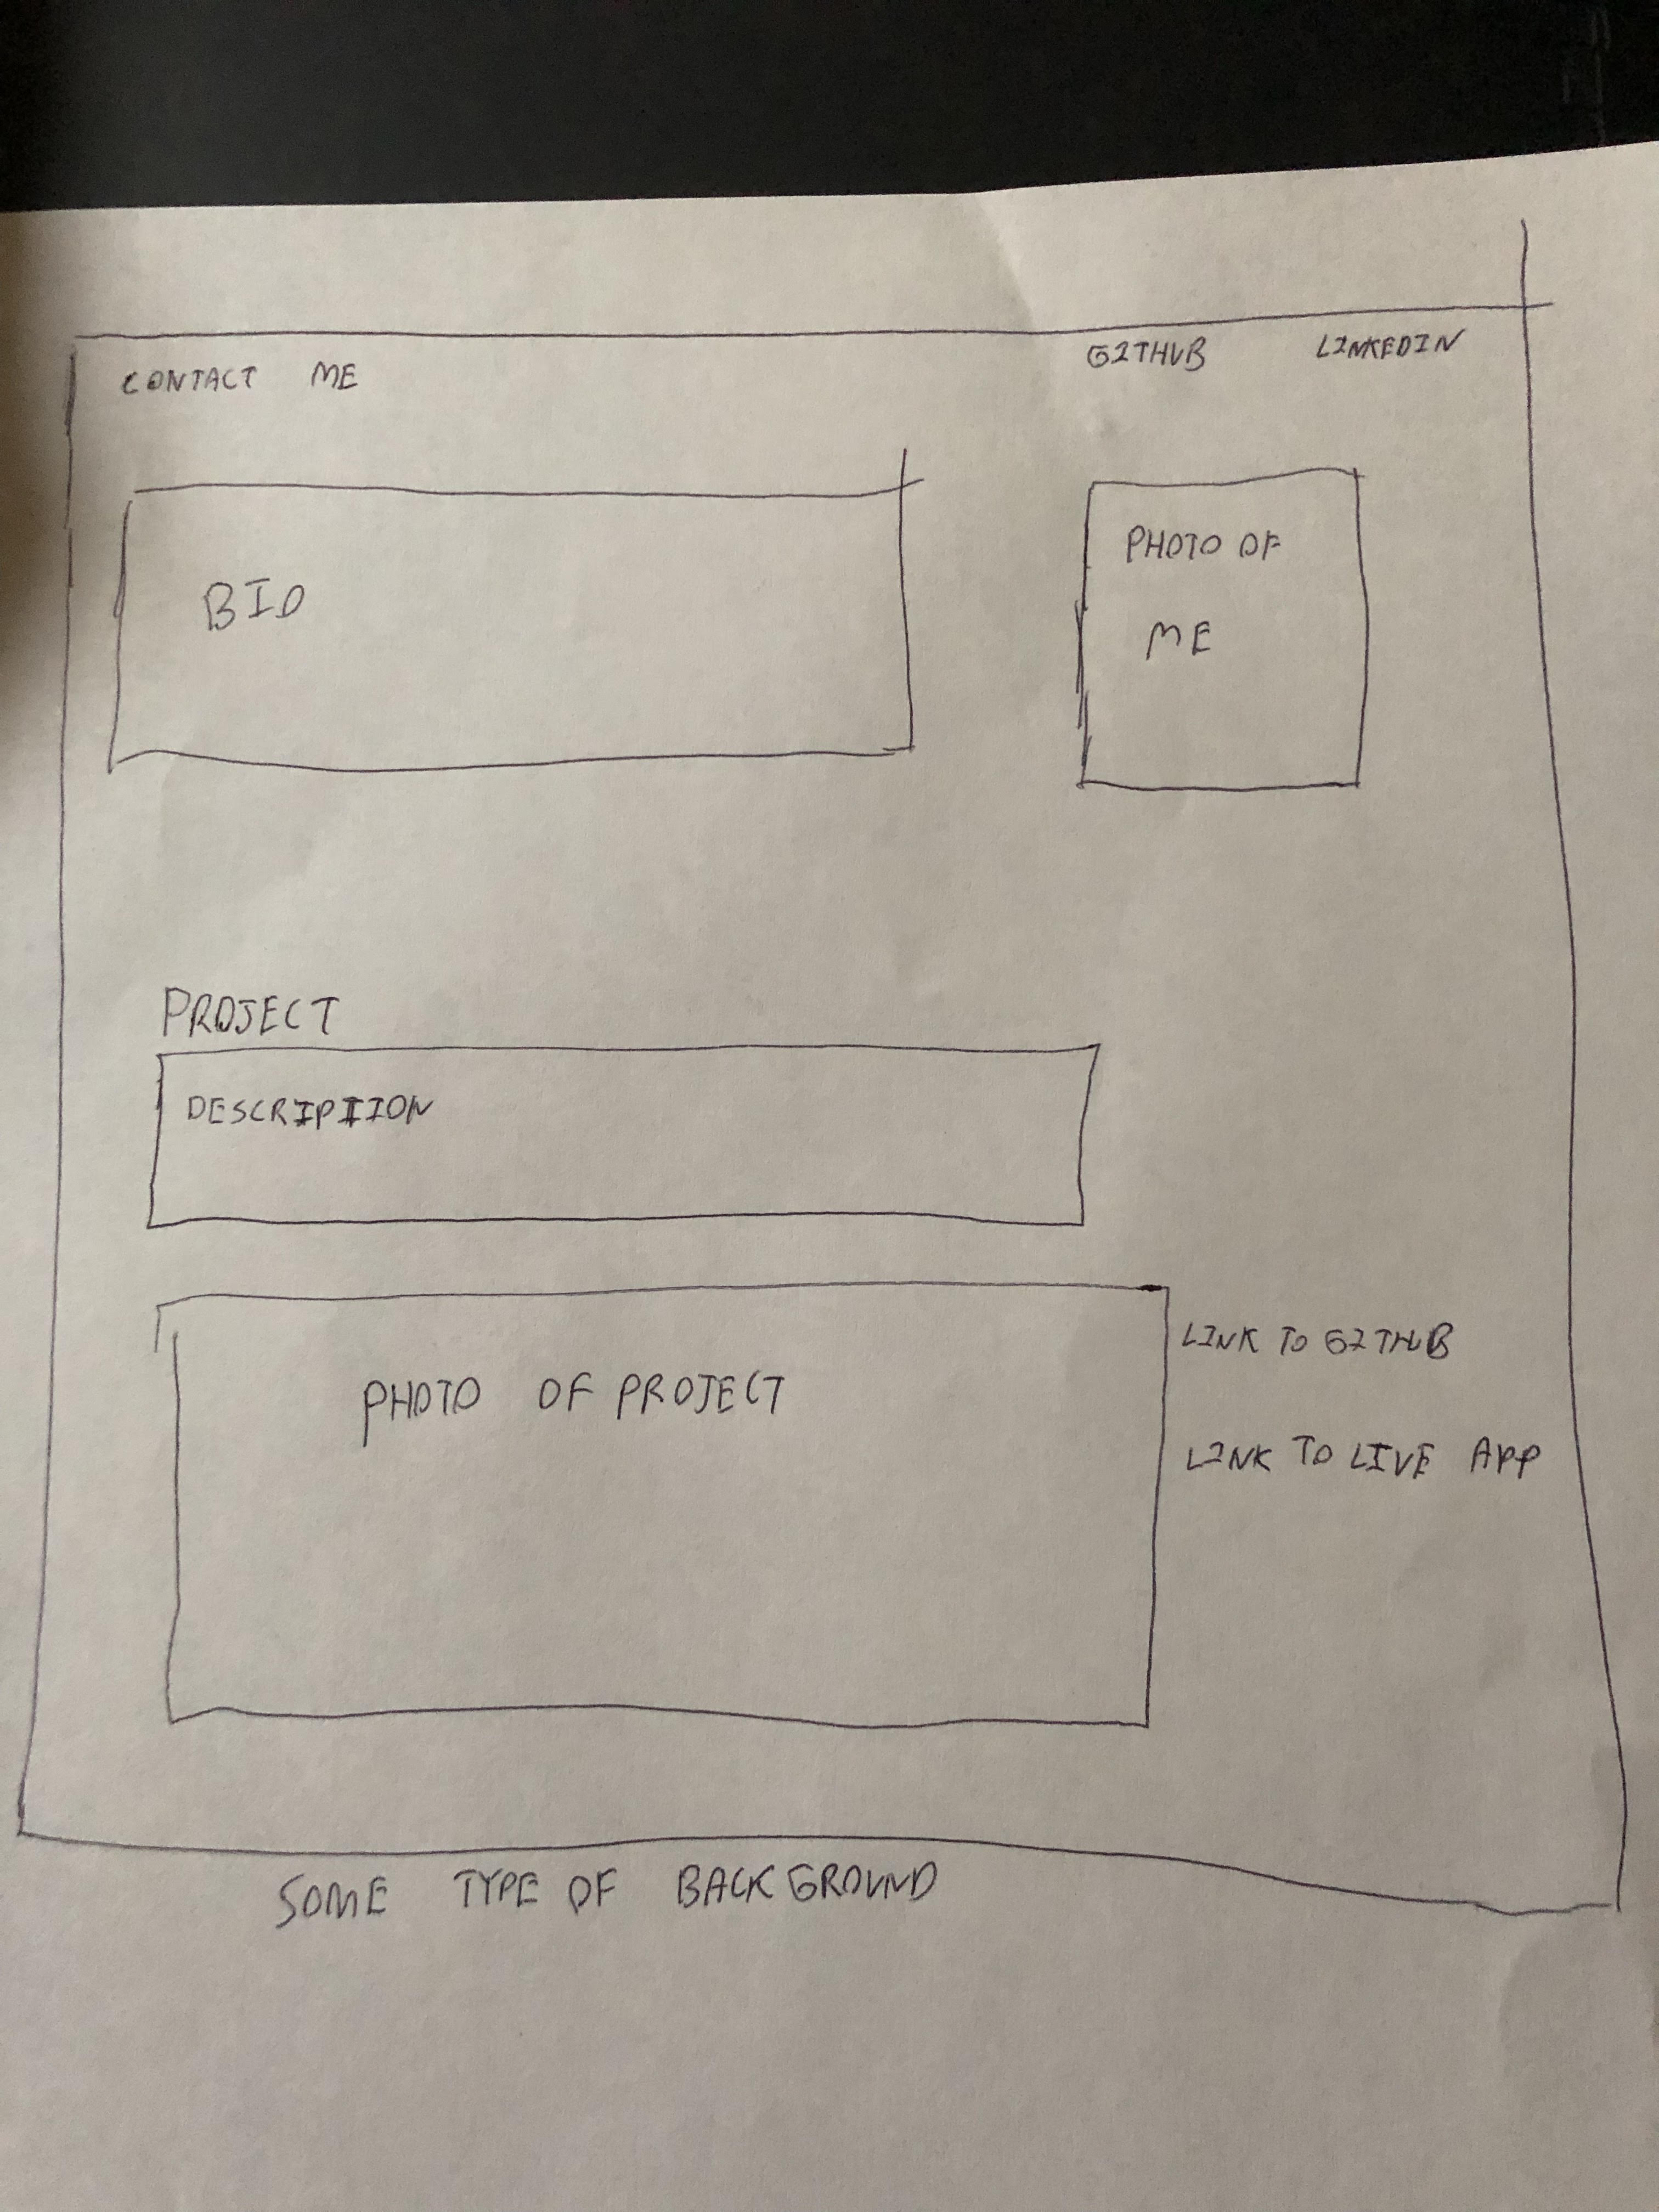 CONTACT ME
GITHUB LINKEDIN
BIO
PHOTO OF
ME
PROJECT
DESCRIPIION
PHOTO OF PROJECT
LINK TO GITHUB
LINK TO LIVE APP
SOME TYPE OF BACKGROUND